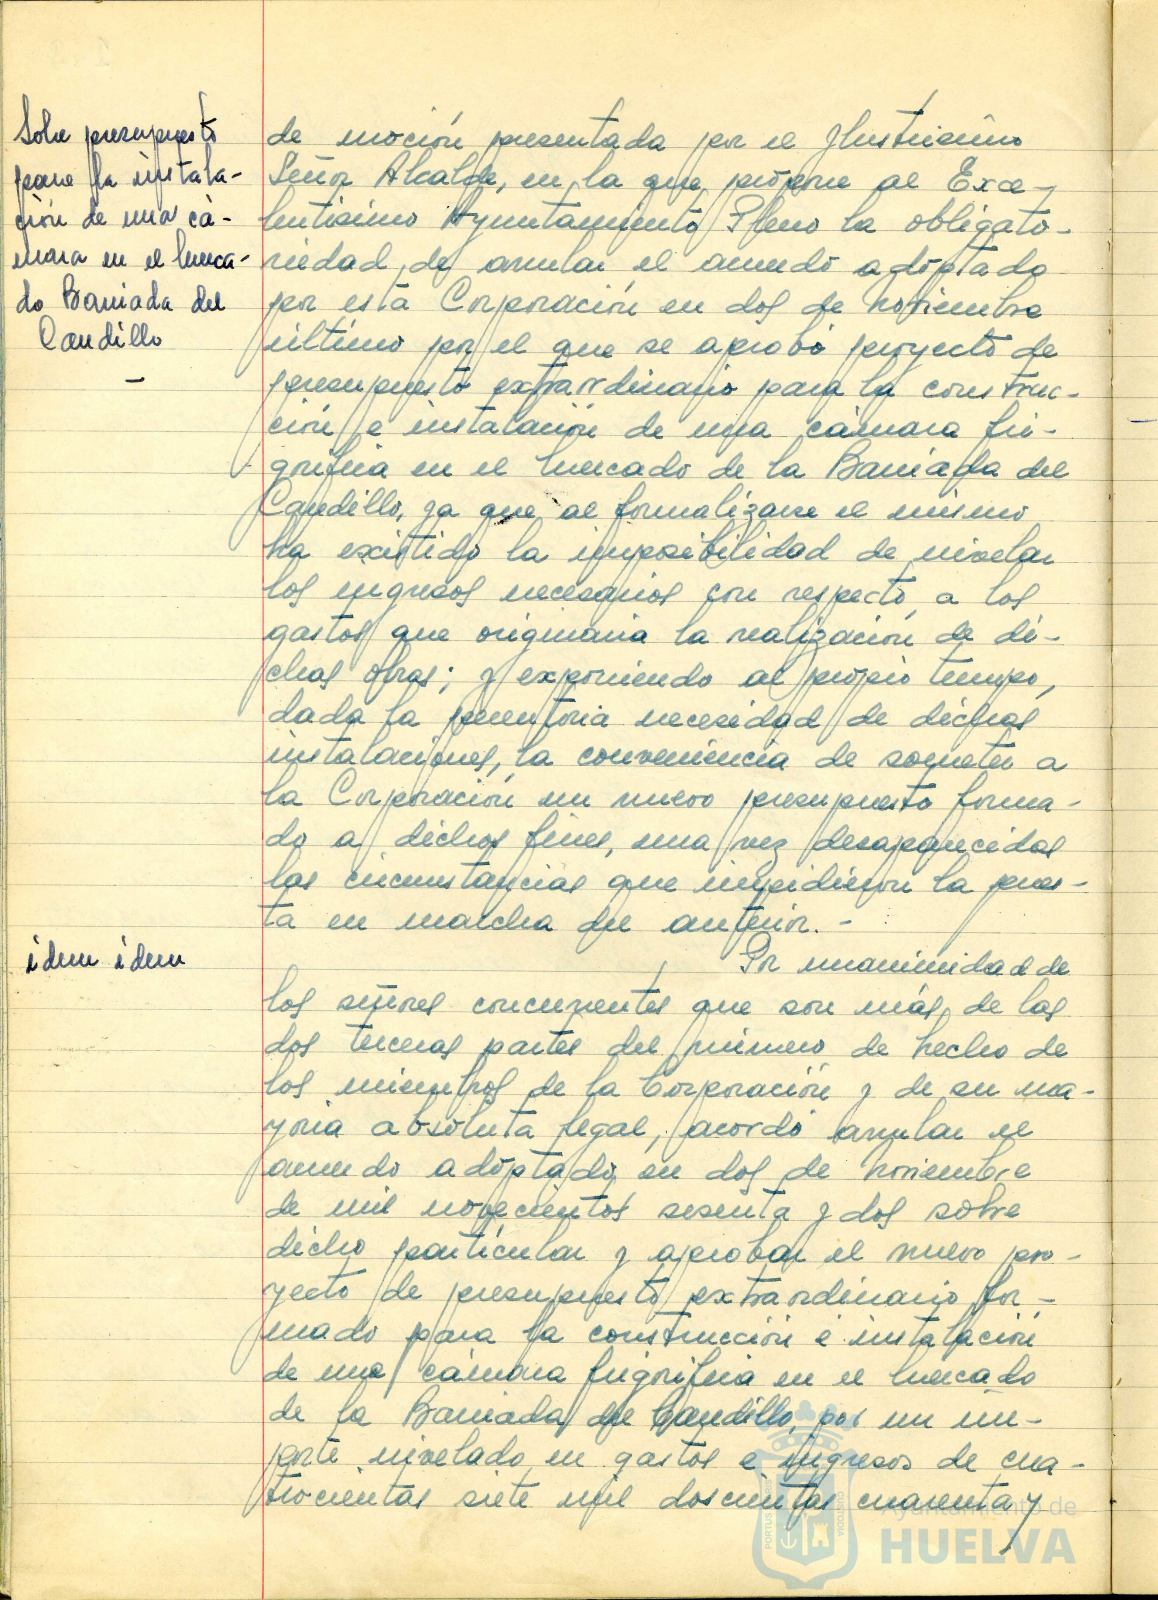 Sobre presupuesto
para la instala-
ción de una cá-
mara en el merca-
do Barriada del
Caudillo
de moción presentada por el Ilustrísimo
Señor Alcalde, en la que propone al Exce-
lentísimo Ayuntamiento Pleno la obligato-
riedad de anular el acuerdo adoptado
por esta Corporación en dos de noviembre
último por el que se aprobó proyecto de
presupuesto extraordinario para la construc-
ción e instalación de una cámara fri-
gorífica en el mercado de la Barriada del
Caudillo, ya que al formalizarse el mismo
ha existido la imposibilidad de nivelar
los ingresos necesarios con respecto a los
gastos que originaria la realización de di-
chas obras; y exponiendo al propio tiempo,
dada la perentoria necesidad de dichas
instalaciones, la conveniencia de someter a
la Corporación un nuevo presupuesto forma-
do a dichos fines, una vez desaparecidas
las circunstancias que impidieron la pues-
ta en marcha del anterior.-
idem idem
Por unanimidad de
los señores concurrentes que son más de las
dos terceras partes del número de hecho de
los miembros de la Corporación y de su ma-
yoria absoluta legal, acordó anular el
acuerdo adoptado en dos de noviembre
de mil novecientos sesenta y dos sobre
dicho particular y aprobar el nuevo pro-
yecto de presupuesto extraordinario for-
mado para la construcción e instalación
de una cámara frigorífica en el mercado
de la Barriada del Caudillo, por un im-
porte nivelado en gastos e ingresos de cua-
trocientas siete mil doscientas cuarenta y
Ayuntamiento de
HUELVA